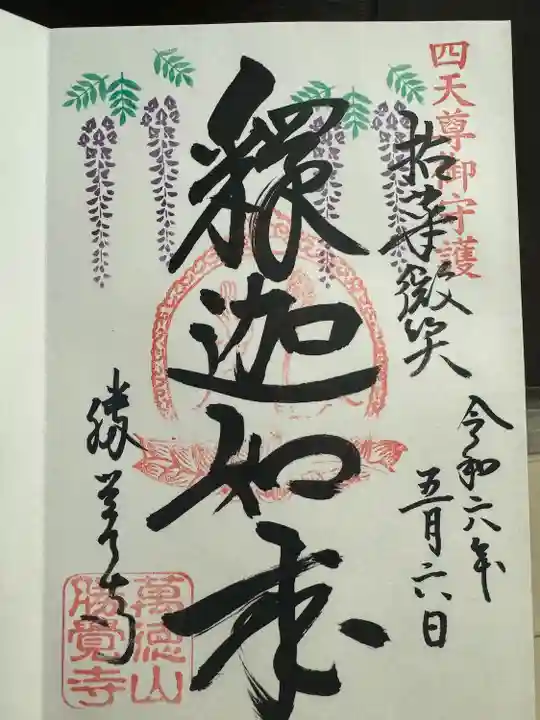 四天尊御守護
拈華微笑
令和六年
五月六日
釋迦如来
勝覚寺
萬徳山
勝覺寺